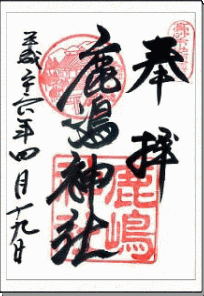 奉拝
鹿嶋神社
鹿嶋神社
平成二六年四月十九日